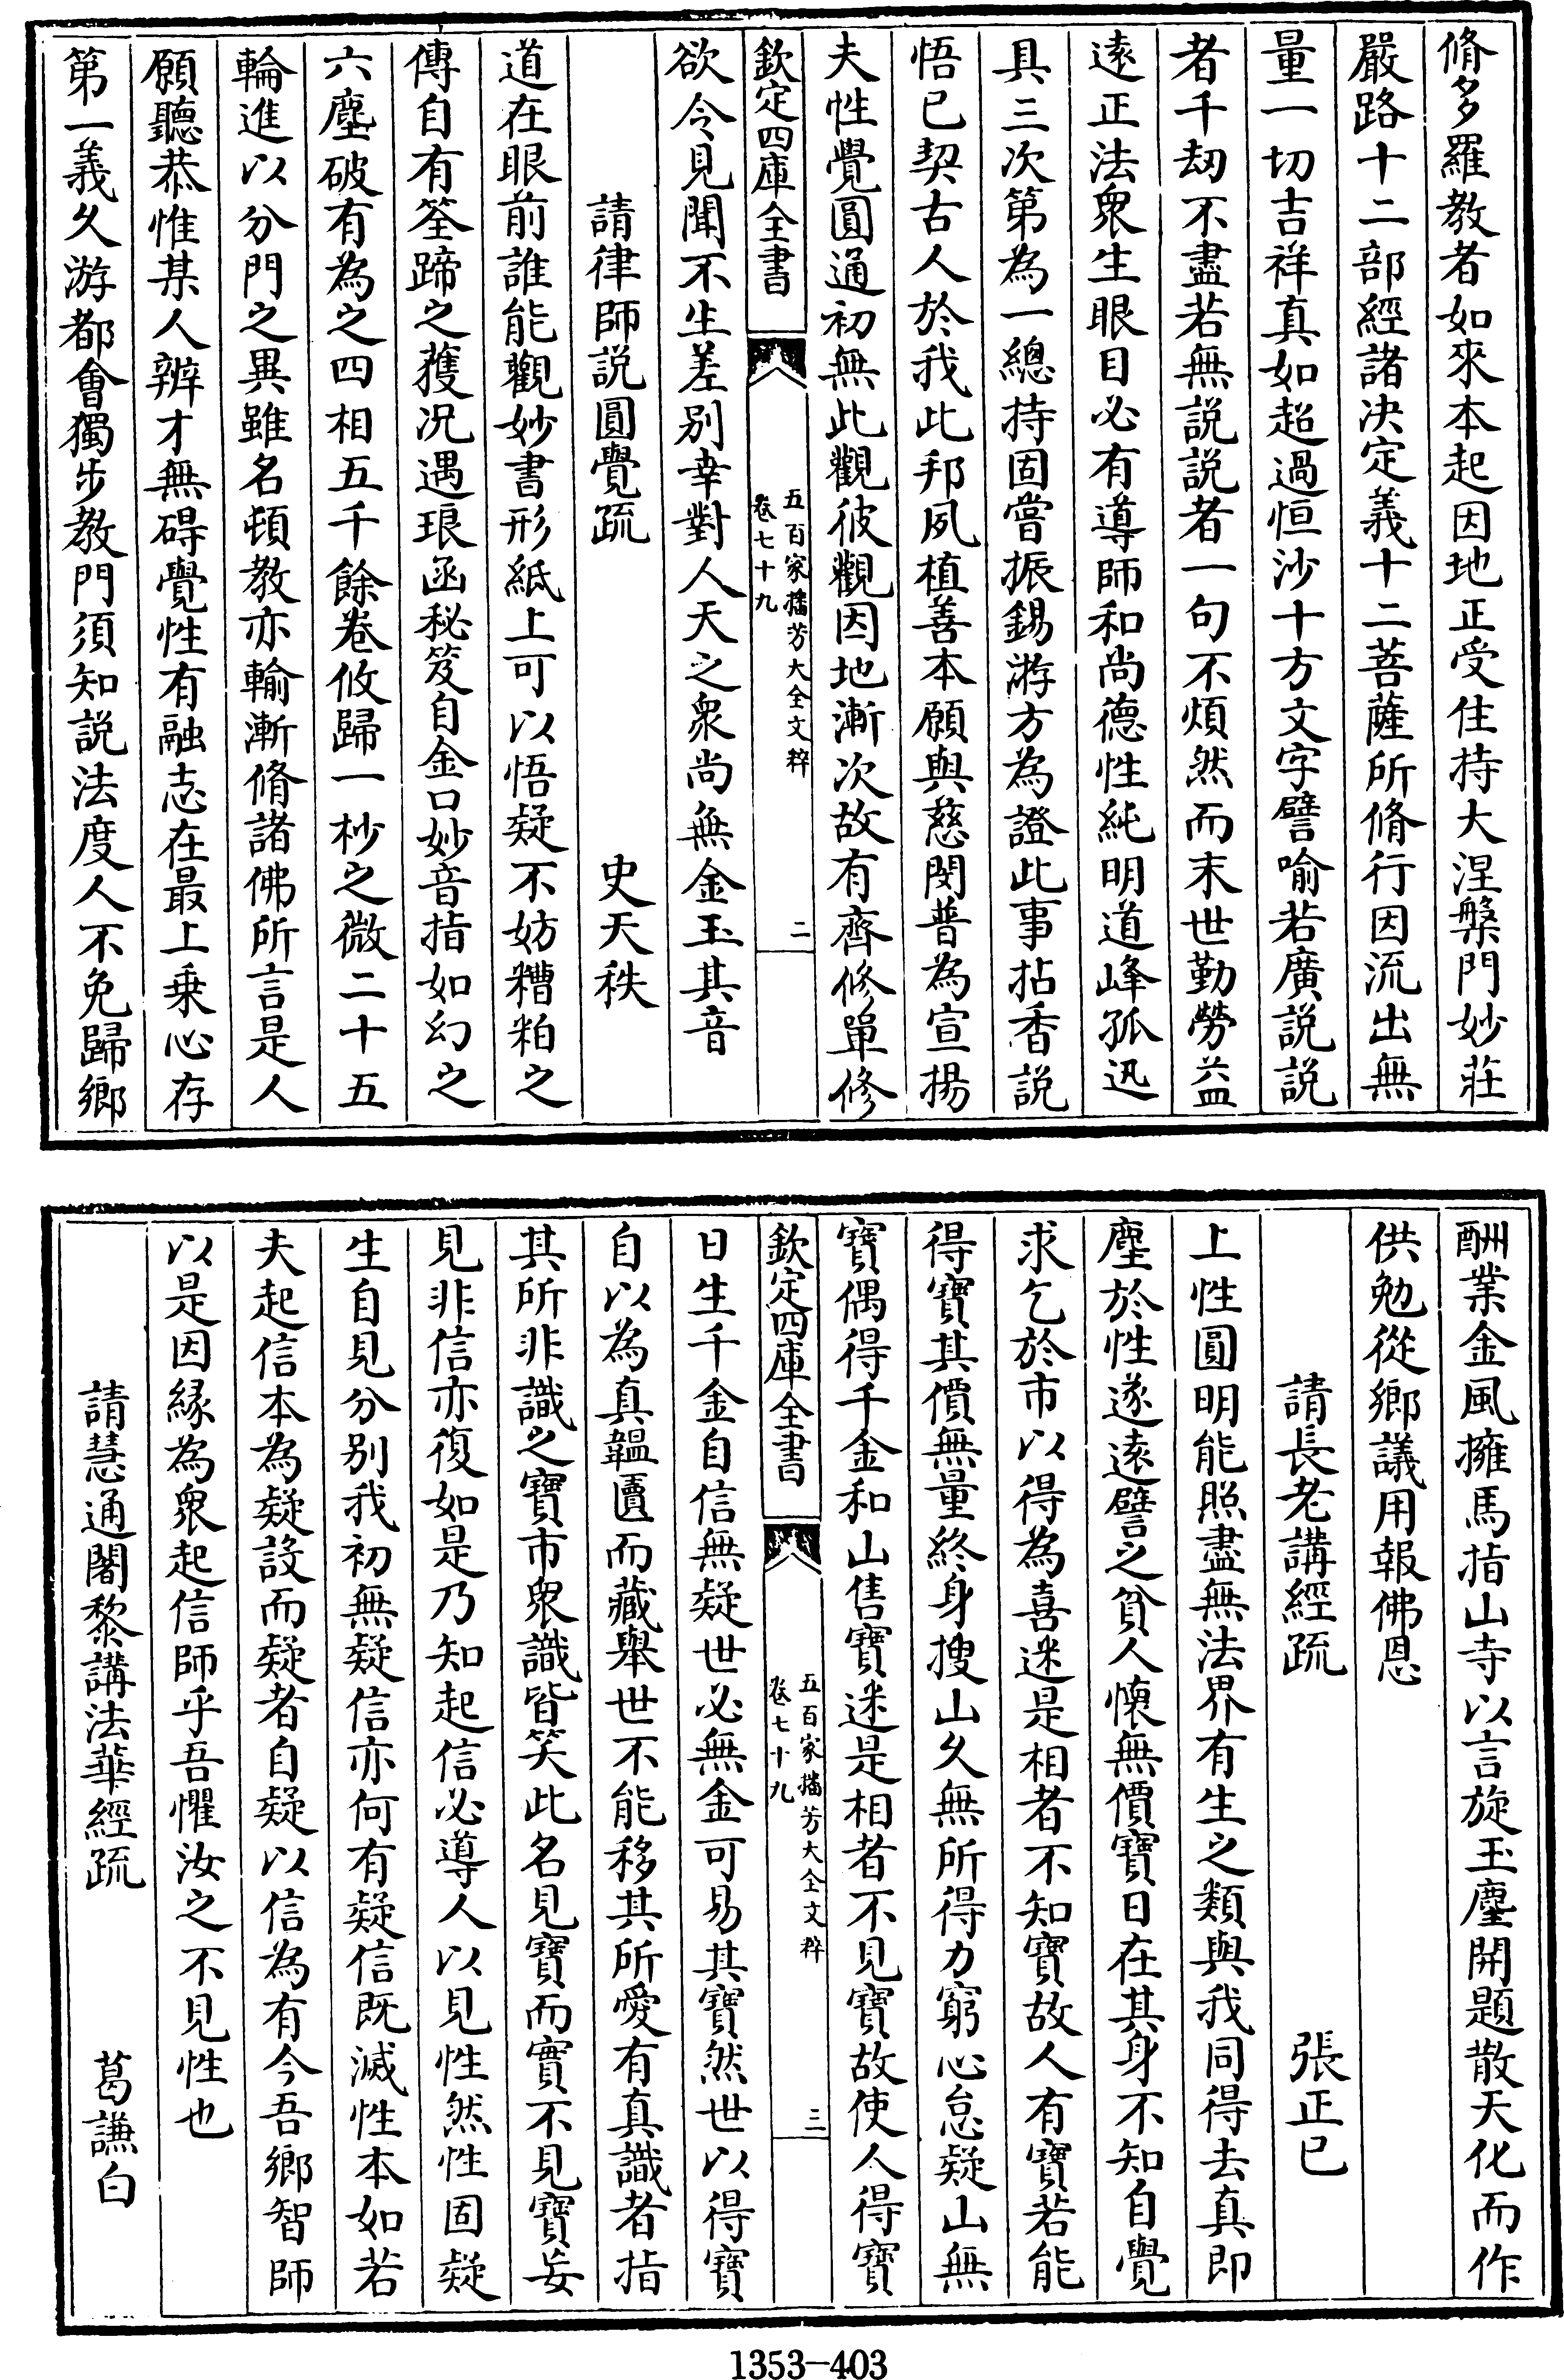 脩多羅教者如來本起因地正受住持大涅槃門妙莊
嚴路十二部經諸決定義十二菩薩所脩行因流出無
量一切吉祥真如超過恒沙十方文字譬喻若廣説説
者千刼不盡若無説説者一句不煩然而末世勤勞益
逺正法衆生眼目必有導師和尚德性純明道峰孤迅
具三次第為一總持固嘗振錫游方為證此事拈香説
悟已契古人於我此邦夙植善本願與慈閔普為宣揚
夫性覺圓通初無此觀彼觀因地漸次故有齊修單修
欽定四庫全書
五百家播芳大全文粹
卷七十九
二
欲令見聞不生差别幸對人天之衆尚無金玉其音
請律師説圓覺疏
史天秩
道在眼前誰能觀妙書形紙上可以悟疑不妨糟粕之
傳自有筌蹄之蒦况遇琅函秘笈自金口妙音指如幻之
六塵破有為之四相五千餘卷攸歸一杪之微二十五
輪進以分門之異雖名頓教亦輸漸脩諸佛所言是人
願聽恭惟某人辨才無碍覺性有融志在最上乗心存
第一義久游都會獨步教門須知説法度人不免歸鄉
酬業金風擁馬指山寺以言旋玉麈開題散天化而作
供勉從鄉議用報佛恩
請長老講經疏
張正已
上性圓明能照盡無法界有生之類與我同得去真即
塵於性遂逺譬之貧人懐無價寶日在其身不知自覺
求乞於市以得為喜迷是相者不知寶故人有寶若能
得寶其價無量終身搜山久無所得力窮心怠疑山無
寶偶得千金和山售寶迷是相者不見寶故使人得寶
欽定四庫全書
五百家播芳大全文粹
卷七十九
三
日生千金自信無疑世必無金可易其寶然世以得寶
自以為真韞匵而藏舉世不能移其所愛有真識者指
其所非識之寶市衆識皆笑此名見寶而實不見寶妄
見非信亦復如是乃知起信必導人以見性然性固疑
生自見分别我初無疑信亦何有疑信既滅性本如若
夫起信本為疑設而疑者自疑以信為有今吾鄉智師
以是因縁為衆起信師乎吾懼汝之不見性也
請慧通闍黎講法華經疏
葛謙白
1353—403